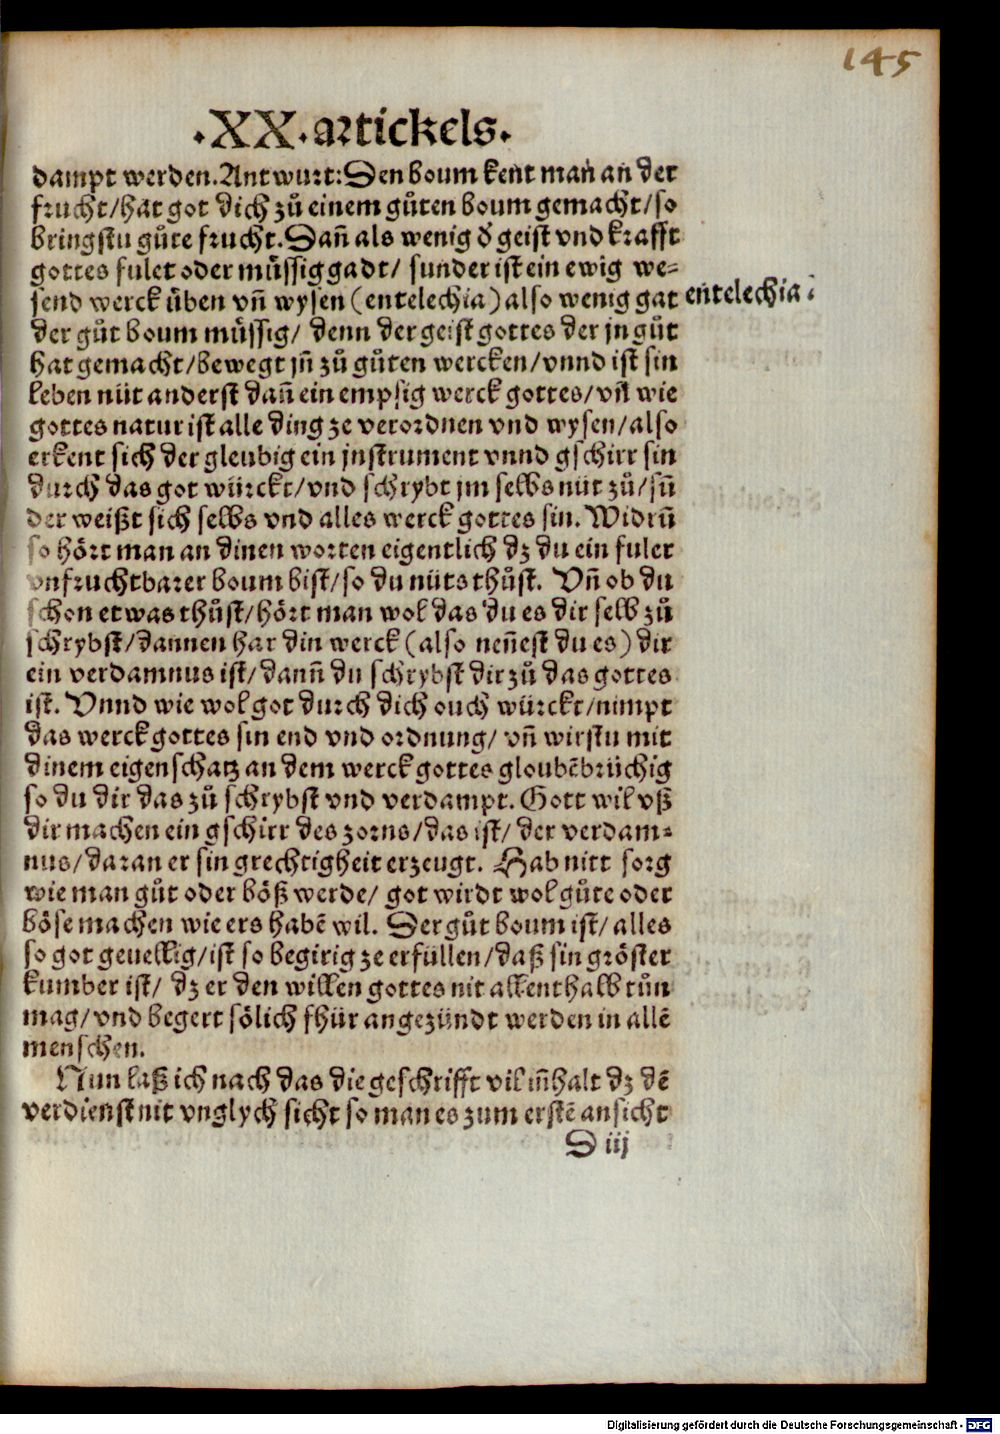 145
·XX·artickels·
dampt werden.Antwurt:Den boum kent mañ an der
frucht/hat got dich zů einem gůten boum gemacht/so
bringstu gůte frucht.Dañ als wenig d̕ geist vnd krafft
gottes fulet oder můssig gadt/ sunder ist ein ewig we⸗
send werck ůben vñ wysen (entelechia) also wenig gat
entelechia.
der gůt boum můssig/ denn der geist gottes der jn gůt
hat gemacht/bewegt jñ zů gůten wercken/vnnd ist sin
leben nüt anderst dañ ein empsig werck gottes/vñ wie
gottes natur ist alle ding ze verordnen vnd wysen/also
erkent sich der gleubig ein jnstrument vnnd gschirr sin
durch das got würckt/vnd schrybt jm selbs nüt zů/suñ
der weißt sich selbs vnd alles werck gottes sin. Widrũ
so hört man an dinen worten eigentlich dz du ein fuler
vnfruchtbarer boum bist/so du nüts thůst. Vñ ob du
schon etwas thůst/hört man wol das du es dir selb zů
schrybst/dannen har din werck (also neñest du es) dir
ein verdamnus ist/dann̄ du schrybst dir zů das gottes
ist. Vnnd wie wol got durch dich ouch würckt/nimpt
das werck gottes sin end vnd ordnung/ vñ wirstu mit
dinem eigenschatz an dem werck gottes gloubẽbrüchig
so du dir das zů schrybst vnd verdampt. Gott wil vß
dir machen ein gschirr des zorns/das ist/ der verdam⸗
nus/daran er sin grechtigheit erzeugt. Hab nitt sorg
wie man gůt oder böß werde/ got wirdt wol gůte oder
böse machen wie ers habẽ wil. Der gůt boum ist/ alles
so got geuellig/ist so begirig ze erfüllen/daß sin gröster
kumber ist/ dz er den willen gottes nit allenthalb tůn
mag/vnd begert sölich fhür angezündt werden in allẽ
menschen.
Nun laß ich nach das die geschrifft vil iñhalt dz dẽ
verdienst nit vnglych sicht so man es zum erstẽ ansicht
D iij
Digitalisierung gefördert durch die Deutsche Forschungsgemeinschaft - DFG